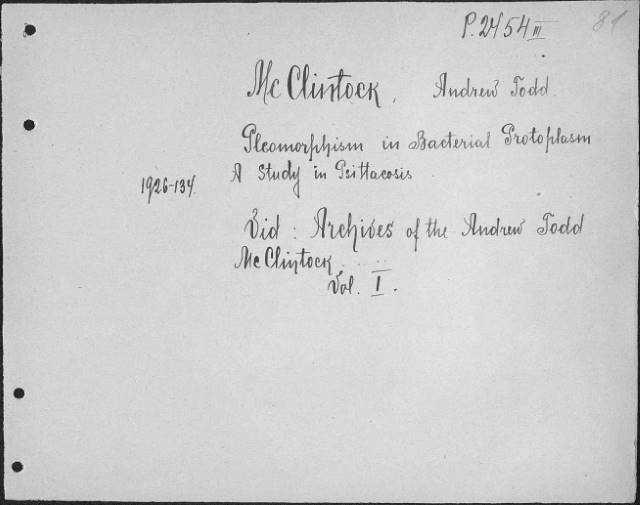 P.2454 III 81
Mc Clintock, Andrew Todd
Pleomorphism in Bacterial Protoplasm
A Study in Psittacosis
1926-134
Vid: Archives of the Andrew Todd
Mc Clintock
Vol. I.